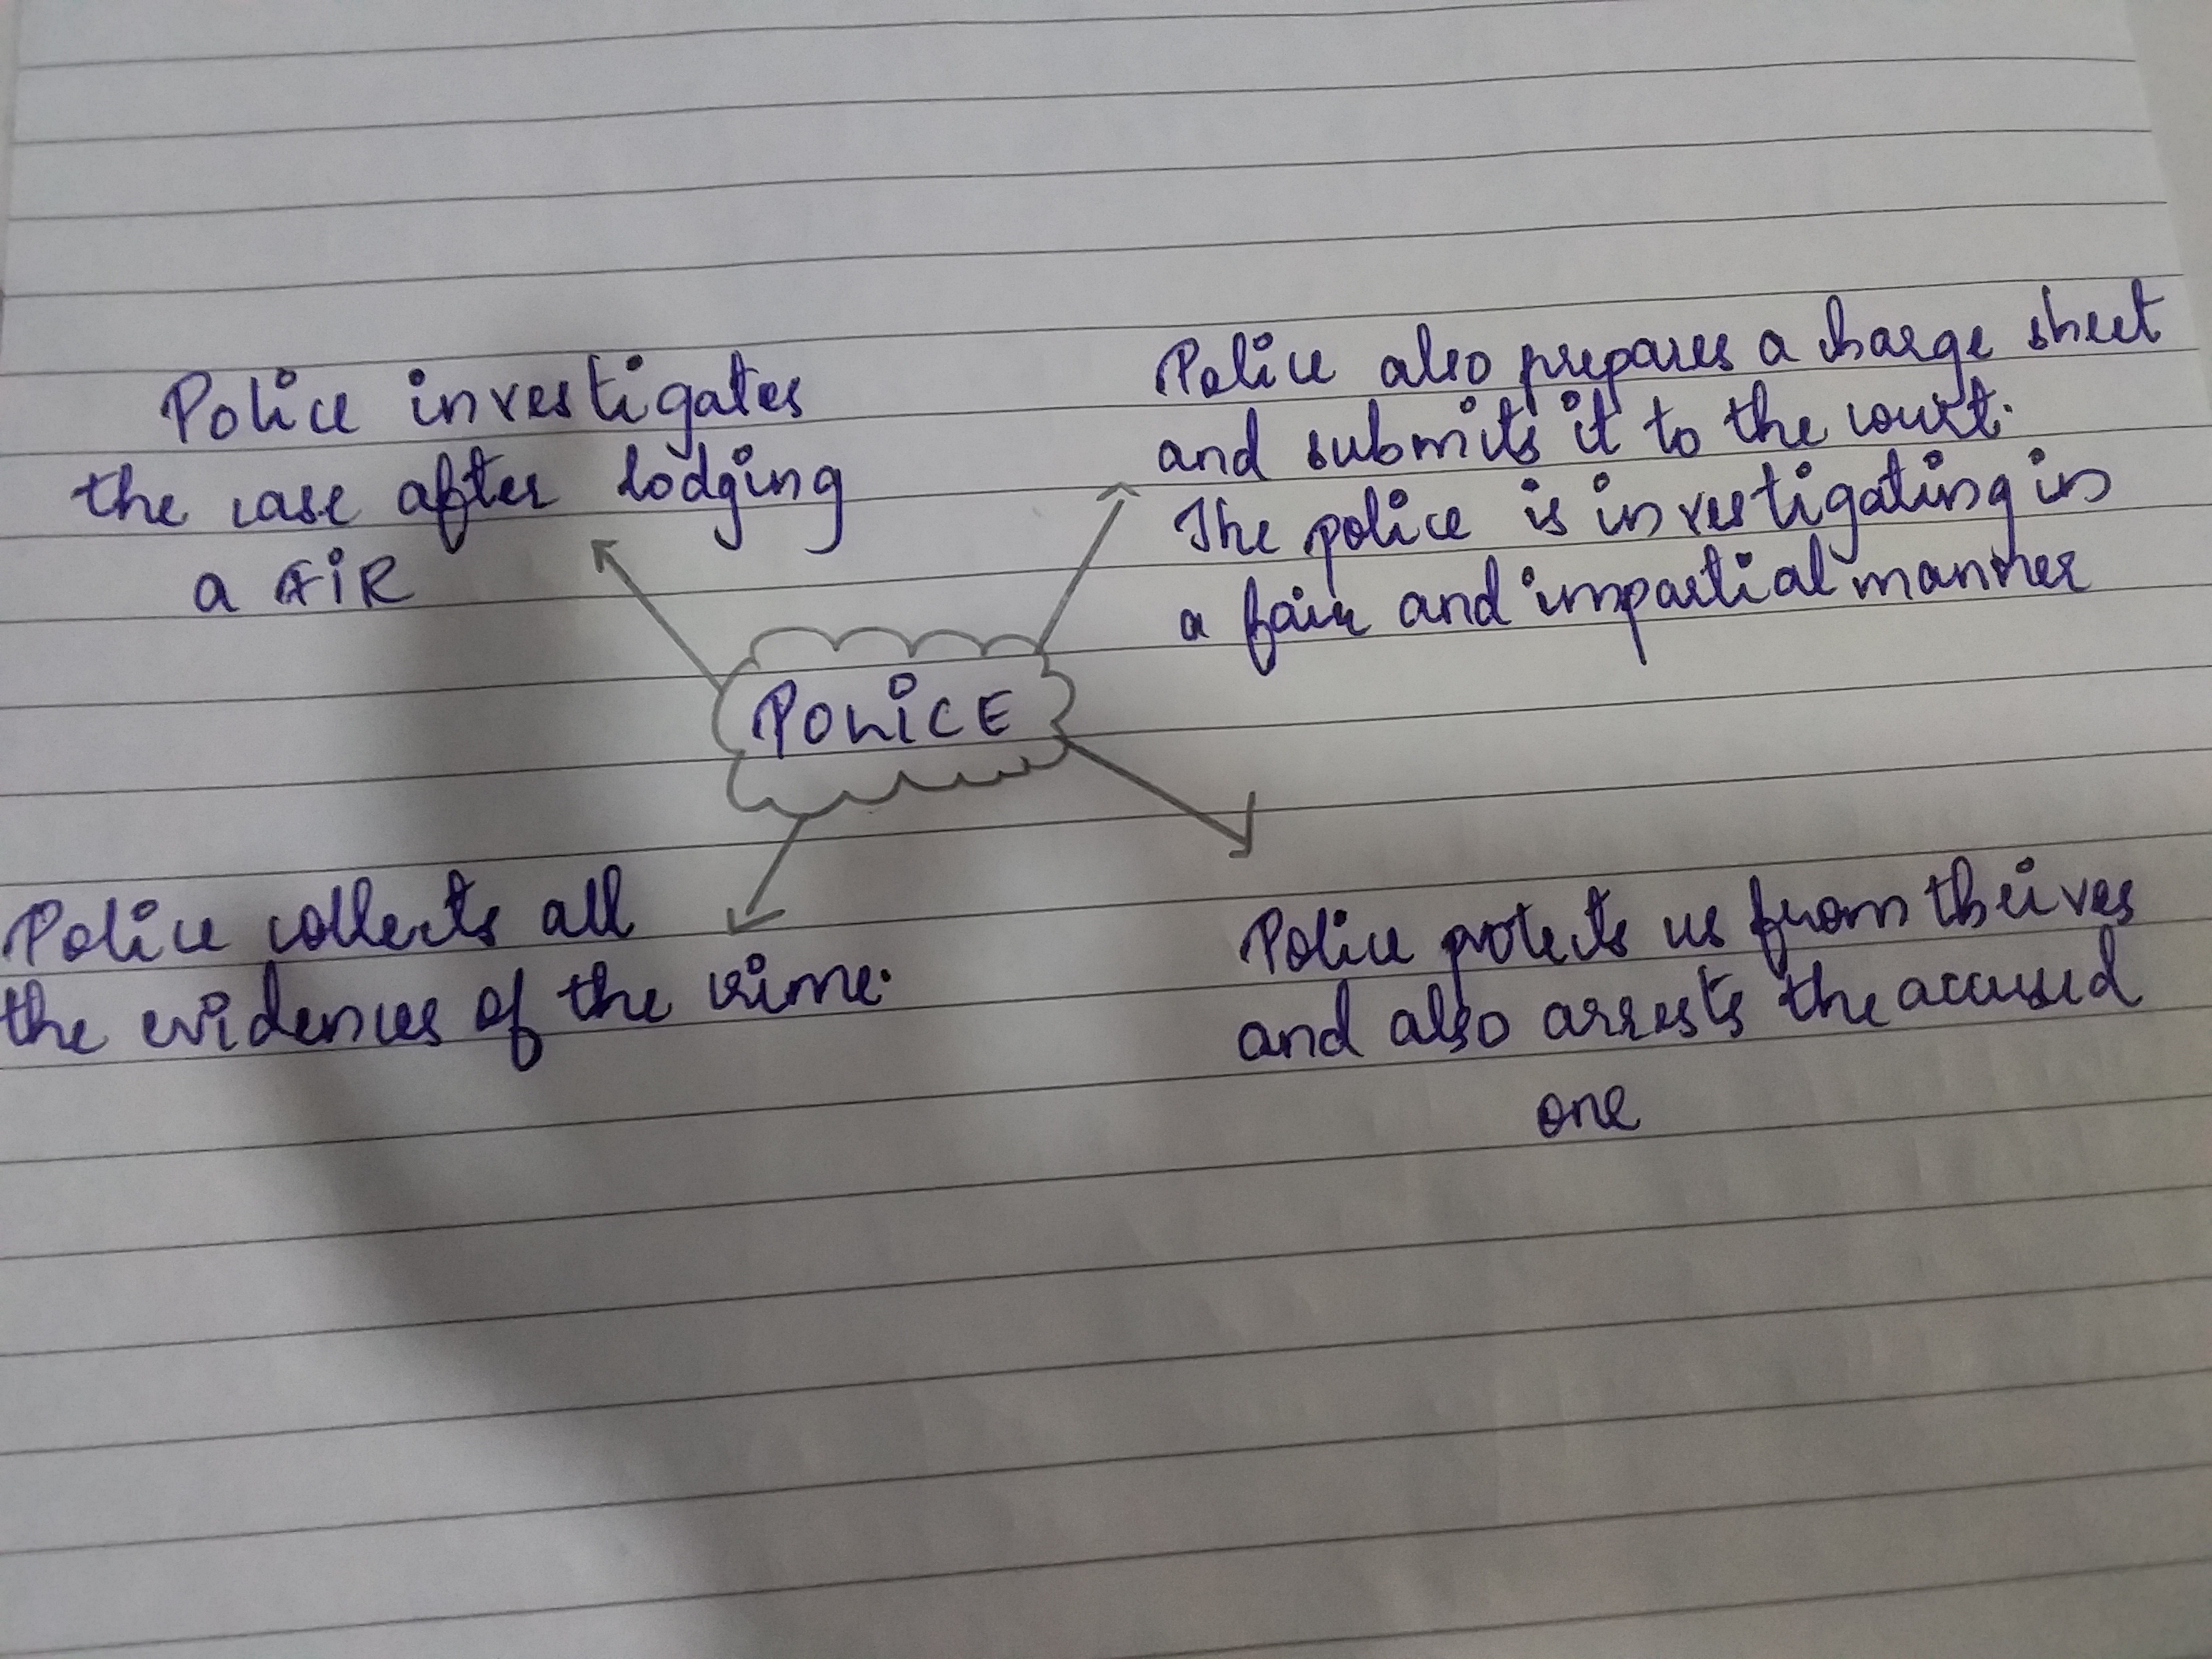 Police investigates
the case after lodging
a FiR
Police also prepares a charge sheet
and submits it to the court.
The police is investigating in
a fair and impartial manner
POLiCE
Police collects all
the evidences of the crime.
Police protects us from theives
and also arrests the accused
one